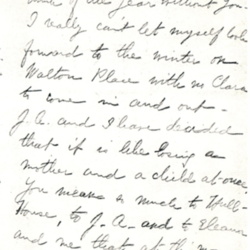 of the year without you
I really can't let myself look
forward to the winter on
Walton Place with no Clara
to come in and out -
J. A. and I have decided
that it is like losing a
mother and a child at once
You mean so much to Hull-
House, to J. A. and to Eleanor
and me that at this